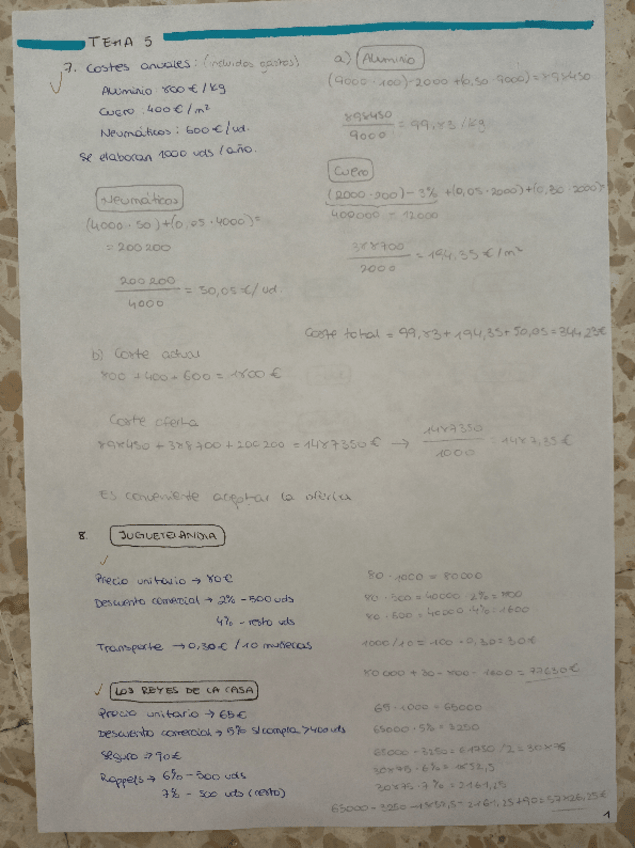 TEMA 5
7. Costes anuales: (incluidos gastos)
Aluminio: 800 € / Kg
Cuero: 400 € / m²
Neumáticos: 600 € / ud.
Se elaboran 1000 uds / año.
a) Aluminio
(9000 · 100) - 2000 + (0,50 · 9000) = 898450
898450 / 9000 = 99,83 / Kg
Neumáticos
(4000 · 50) + (0,05 · 4000) =
= 200 200
200 200 / 4000 = 50,05 € / ud.
Cuero
(2000 · 200) - 3% + (0,05 · 2000) + (0,30 · 2000) =
400000 = 12000
388700 / 2000 = 194,35 € / m²
Coste total = 99,83 + 194,35 + 50,05 = 344,23€
b) Coste actual
800 + 400 + 600 = 1800 €
Coste oferta
898450 + 388700 + 200200 = 1487350 € → 1487350 / 1000 = 1487,35 €
Es conveniente aceptar la oferta
8. JUGUETELANDIA
Precio unitario → 80€
Descuento comercial → 2% - 500 uds
4% - resto uds
Transporte → 0,30 € / 10 muñecas
80 · 1000 = 80000
80 · 500 = 40000 · 2% = 800
80 · 500 = 40000 · 4% = 1600
1000 / 10 = 100 · 0,30 = 30€
80000 + 30 - 800 - 1600 = 77630 €
LOS REYES DE LA CASA
Precio unitario → 65€
Descuento comercial → 5% s/compra > 400 uds
Seguro → 90€
Rappels → 6% - 500 uds
7% - 500 uds (resto)
65 · 1000 = 65000
65000 · 5% = 3250
65000 - 3250 = 61750 / 2 = 30875
30875 · 6% = 1852,5
30875 · 7% = 2161,25
65000 - 3250 - 1852,5 - 2161,25 + 90 = 57826,25€
1